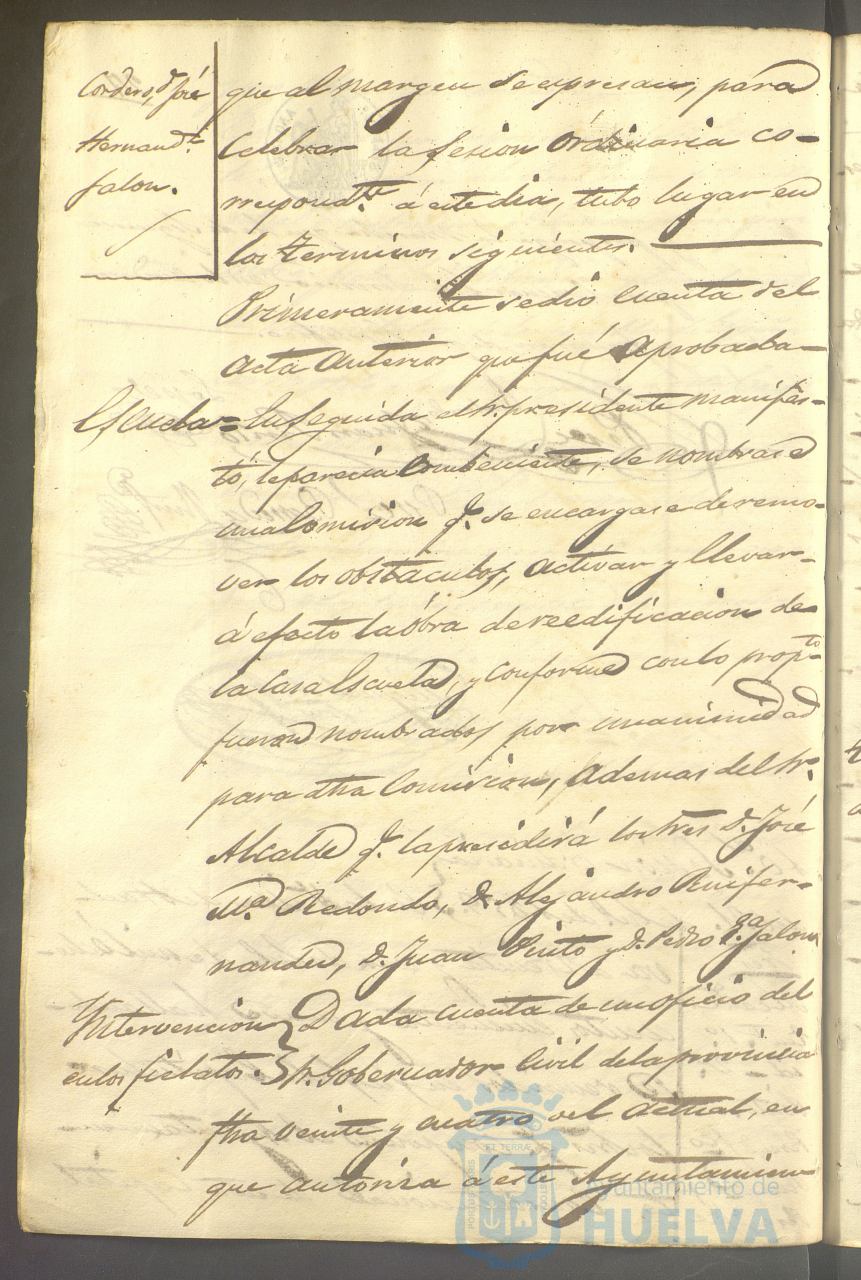 Cordero, d José
Hernandz
Jalon.
que al margen se espresan, para
Celebrar la sesion Ordinaria co-
rrespondte á este dia, tubo lugar en
los terminos siguientes.
Primeramente se dio cuenta del
acta anterior que fué aprobada-
Escuela = En seguida el Sr. presidente manifes-
tó, le parecia combeniente, se nombrase
una Comision q. se encargase de remo-
ver los obstaculos, activar y llevar-
á efecto la óbra de reedificacion de
la Casa Escuela, y conforme con lo proptó
fueron nombrados por unanimidad
para dha Comision, ademas del Sr.
Alcalde q. la presidirá los tres D. José
Ma Redondo, D. Alejandro Ruifer-
nandes, D. Juan Pinto y D. Pedro Ga Jalon
Intervencion
en los fielatos.
Dada cuenta de un oficio del
Sr. Gobernador Civil de la provincia
fha veinte y cuatro del actual, en
que autoriza á este Ayuntamien-
Ayuntamiento de
HUELVA